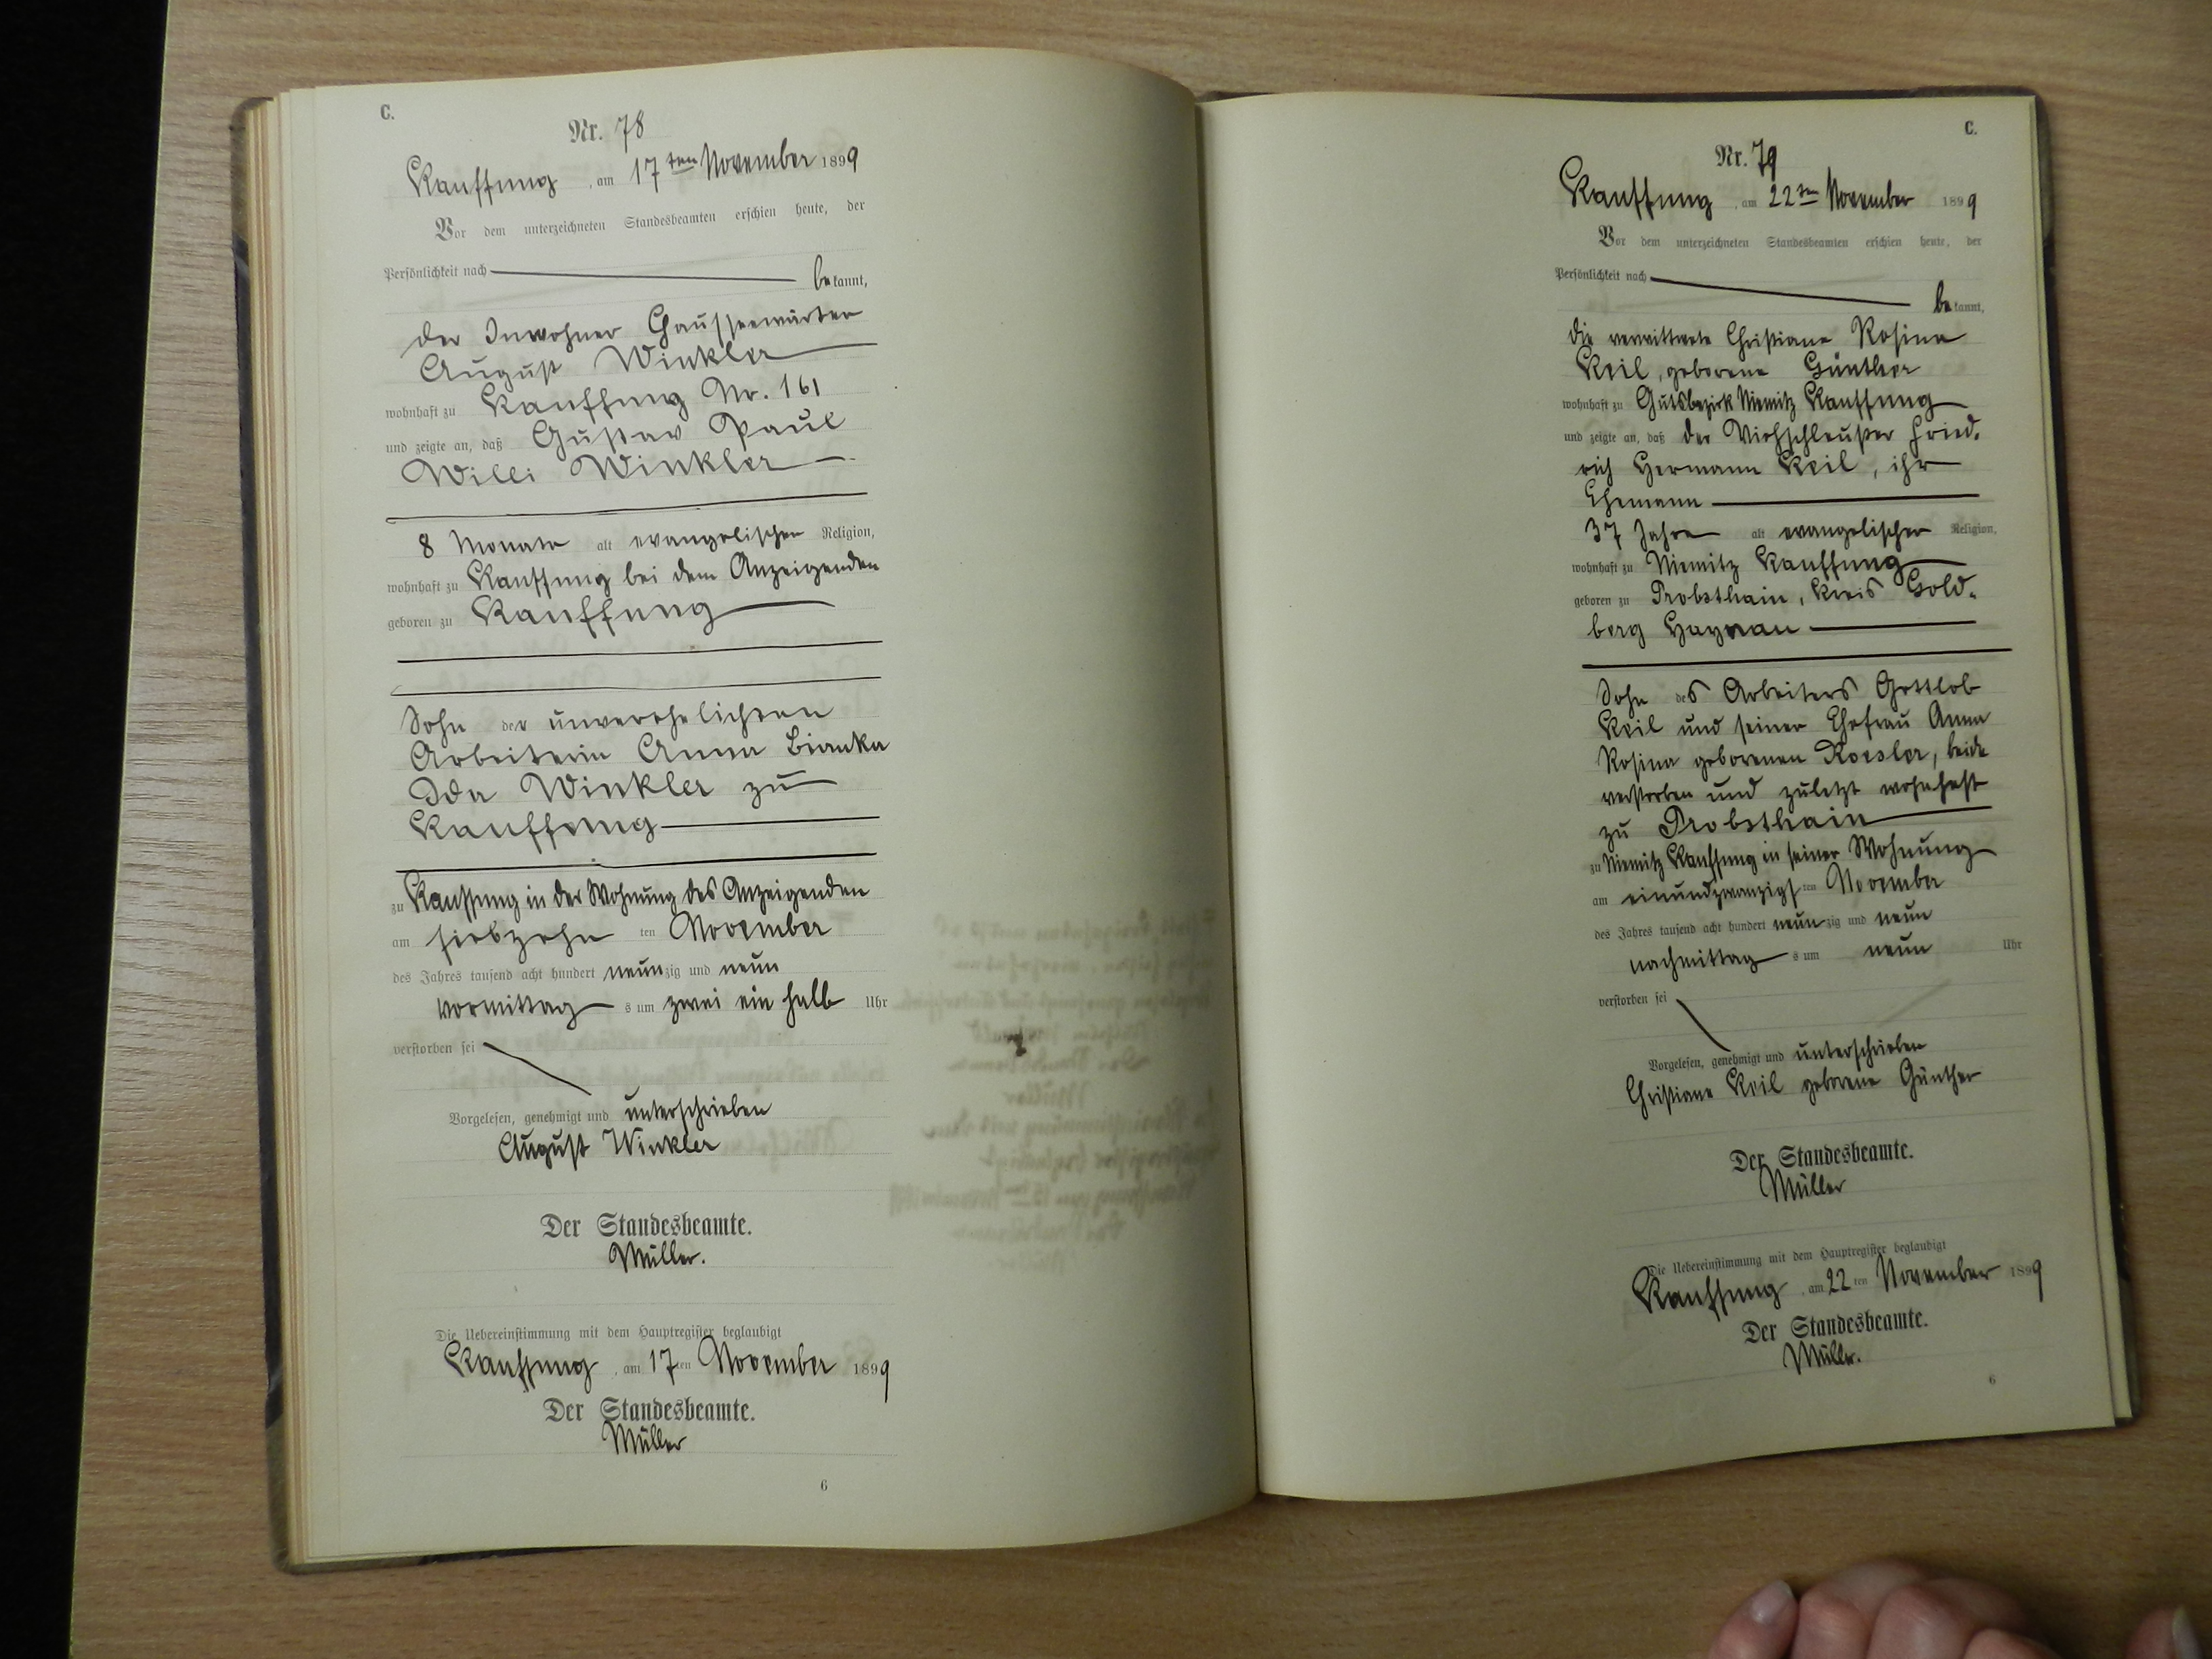 C.
Nr. 78
Kauffung, am 17ten November 1899
Vor dem unterzeichneten Standesbeamten erschien heute, der
Persönlichkeit nach
bekannt,
der Inwohner Chausseewärter
August Winkler
wohnhaft zu Kauffung Nr. 161
und zeigte an, daß Gustav Paul
Willi Winkler
8 Monate alt evangelischer Religion,
wohnhaft zu Kauffung bei dem Anzeigenden
geboren zu Kauffung
Sohn der unverehelichten
Arbeiterin Anna Bianka
Ida Winkler zu
Kauffung
zu Kauffung in der Wohnung des Anzeigenden
am siebzehn ten November
des Jahres tausend acht hundert neunzig und neun
vormittags um zwei ein halb Uhr
verstorben sei
Vorgelesen, genehmigt und unterschrieben
August Winkler
Der Standesbeamte.
Müller.
Die Uebereinstimmung mit dem Hauptregister beglaubigt
Kauffung, am 17ten November 1899
Der Standesbeamte.
Müller
6
C.
Nr. 79
Kauffung, am 22ten November 1899
Vor dem unterzeichneten Standesbeamten erschien heute, der
Persönlichkeit nach
bekannt,
die verwittwete Christiane Rosina
Keil, geborene Günther
wohnhaft zu Gutsbezirk Niemitz Kauffung
und zeigte an, daß der Viehschleußer Fried-
rich Hermann Keil, ihr
Ehemann
37 Jahre alt evangelischer Religion,
wohnhaft zu Niemitz Kauffung
geboren zu Probsthain, Kreis Gold-
berg Haynau
Sohn des Arbeiters Gottlob
Keil und seiner Ehefrau Anna
Rosina geborenen Roesler, beide
verstorben und zuletzt wohnhaft
zu Probsthain
zu Niemitz Kauffung in seiner Wohnung
am einundzwanzigsten November
des Jahres tausend acht hundert neunzig und neun
nachmittags um neun Uhr
verstorben sei
Vorgelesen, genehmigt und unterschrieben
Christiane Keil geborene Günther
Der Standesbeamte.
Müller
Die Uebereinstimmung mit dem Hauptregister beglaubigt
Kauffung, am 22ten November 1899
Der Standesbeamte.
Müller.
6